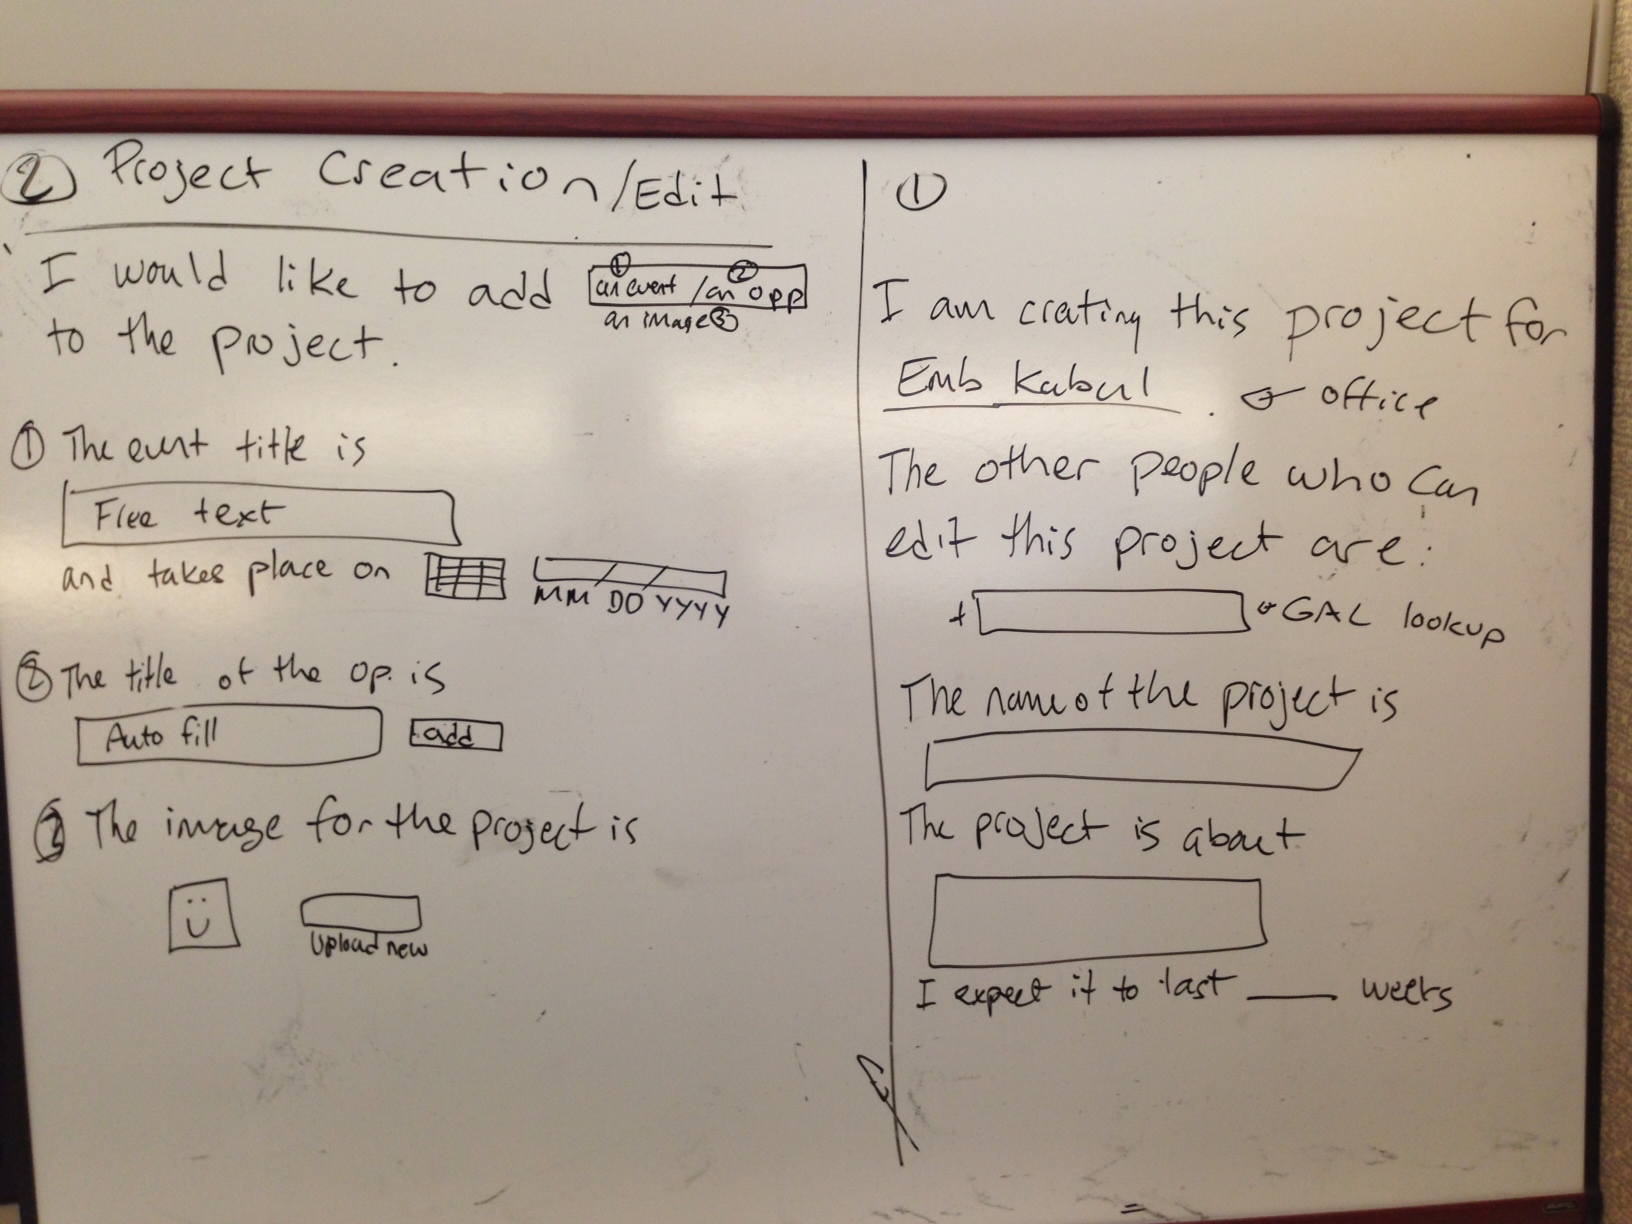 ② Project Creation/Edit
I would like to add
① ②
an event / an opp
an image ③
to the project.
① The event title is
Free text
and takes place on
MM DD YYYY
② The title of the op. is
Auto fill
add
③ The image for the project is
Upload new
①
I am crating this project for
Emb Kabul . office
The other people who can
edit this project are:
+ GAL lookup
The name of the project is
The project is about
I expect it to last ____ weeks